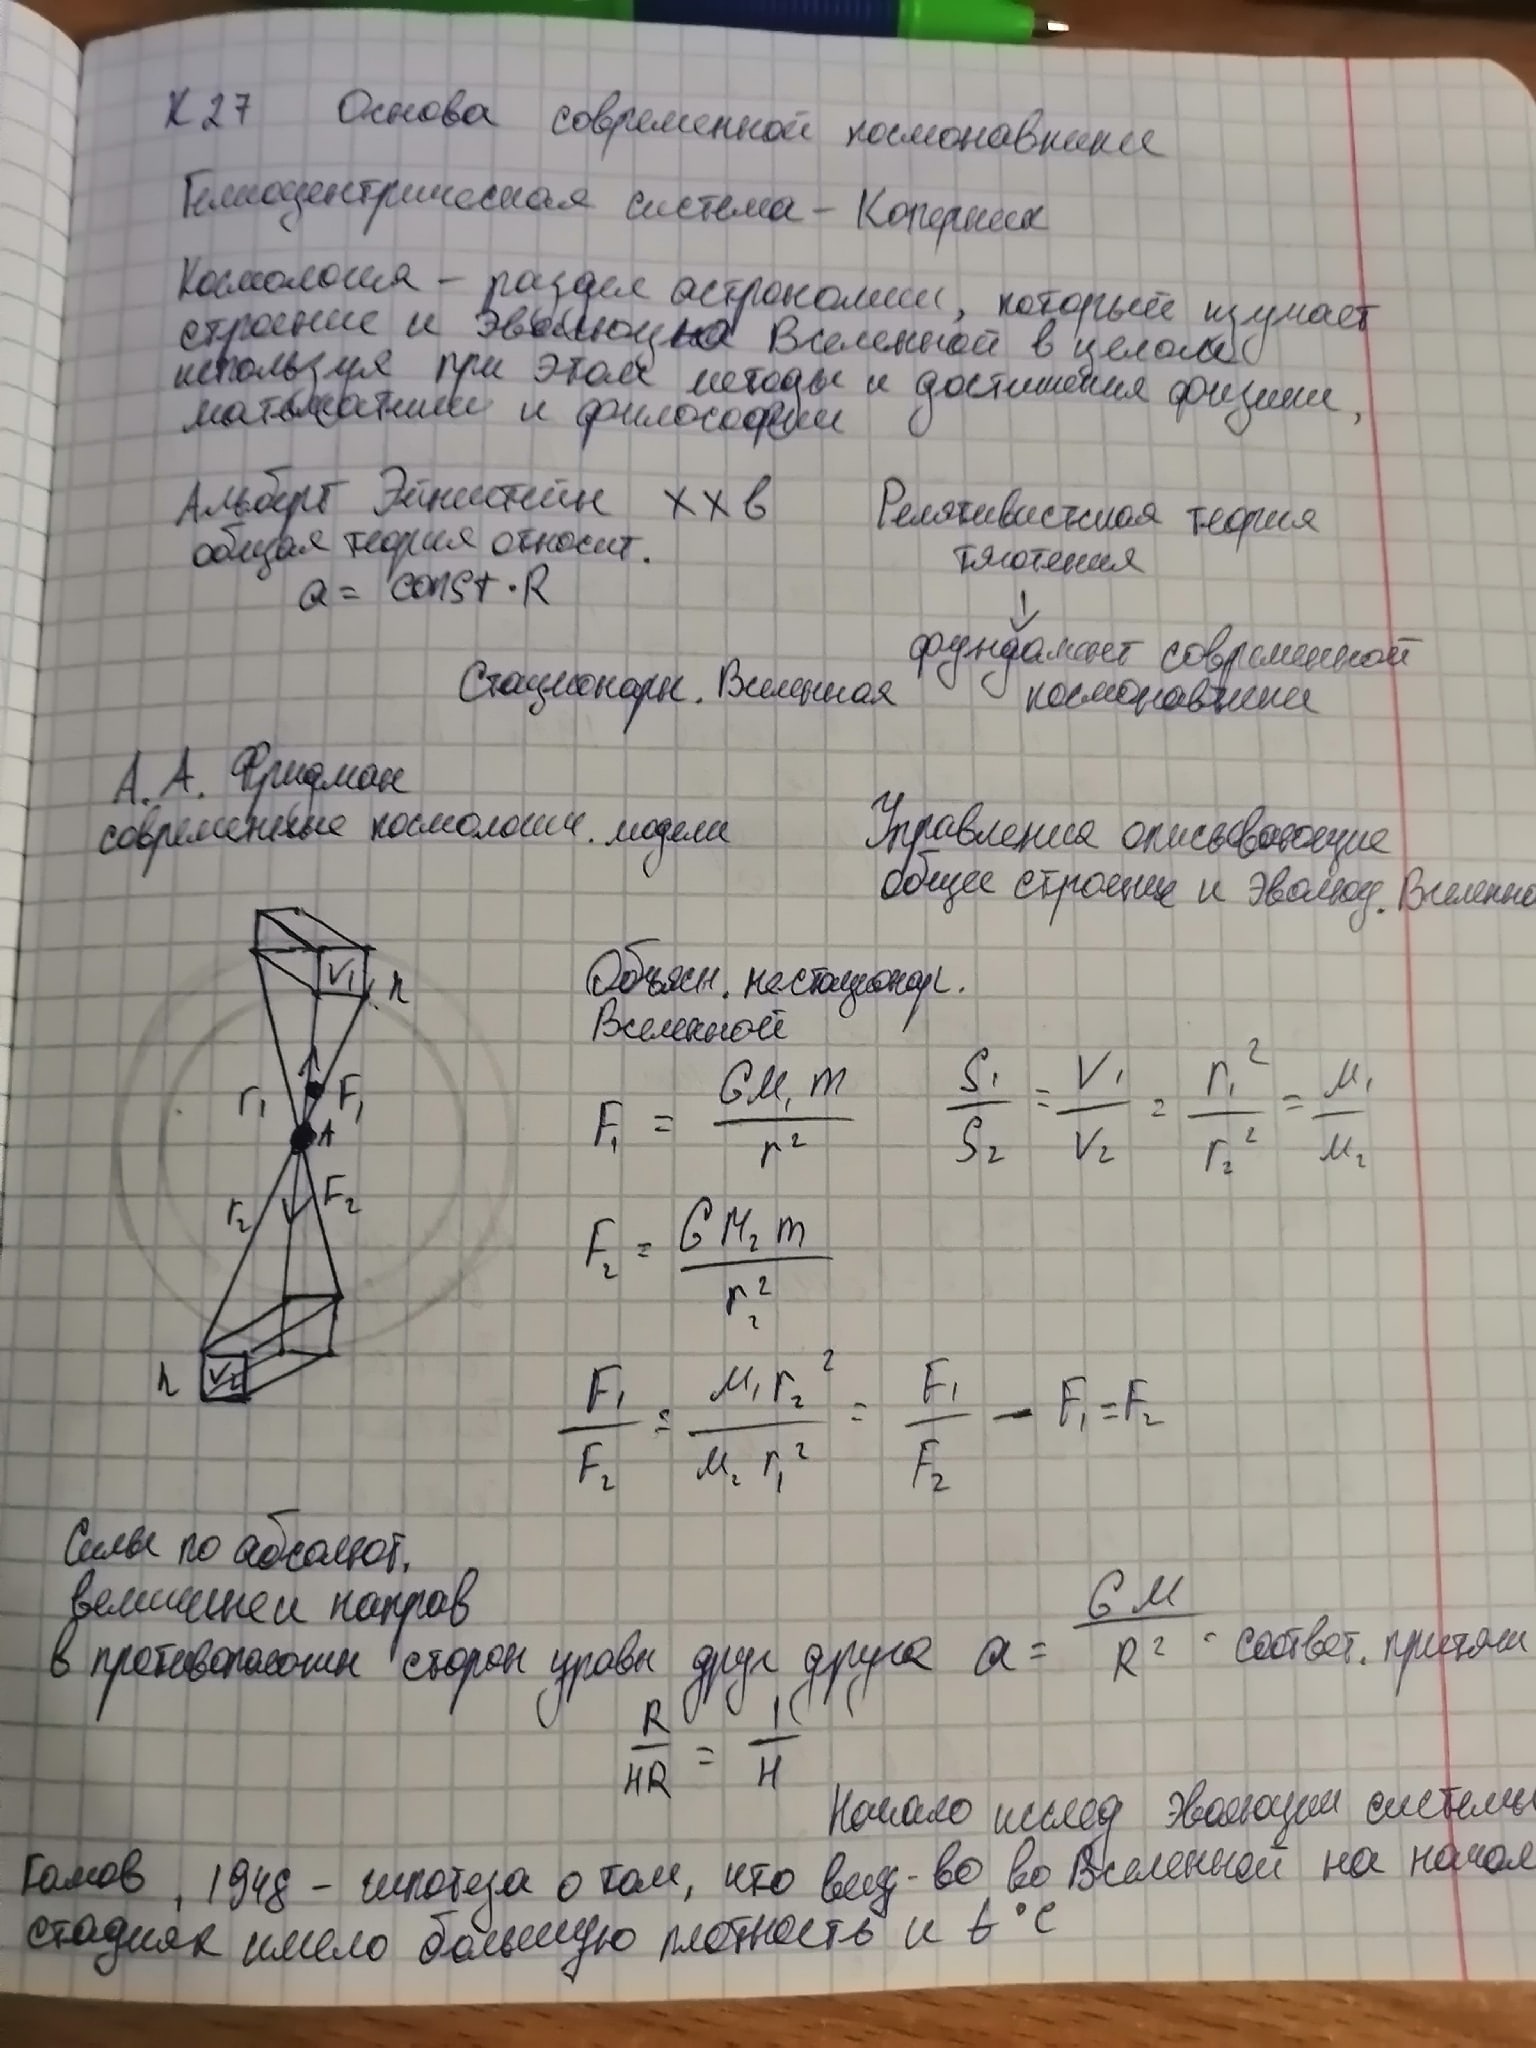 К 27 Основа современной космонавтики
Гелиоцентрическая система – Коперник
Космология – раздел астрономии, который изучает
строение и эволюцию Вселенной в целом
используя при этом методы и достижения физики,
математики и философии
Альберт Эйнштейн XX в
общая теория относит.
a = const · R
Релятивистская теория
тяготения
↓
фундамент современной
космонавтики
Стационарн. Вселенная
А. А. Фридман
современные космологич. модели
Управления описывающие
общее строение и эволюц. Вселенно
V1 h
r1 F1
A
r2 F2
h V2
Объясн. нестационар.
Вселенной
F₁ = GM₁m / r²
S₁/S₂ = V₁/V₂ = r₁²/r₂² = M₁/M₂
F₂ = GM₂m / r₂²
F₁/F₂ = M₁r₂² / M₂r₁² = F₁/F₂ – F₁=F₂
Силы по абсолют.
величине и направ
в противоположн сторон уравн друг друга a = GM / R² - соответ. притяж
R/HR = 1/H
Начало исслед эволюции системы
Гамов, 1948 – гипотеза о том, что вещ-во во Вселенной на начал
стадиях имело большую плотность и t°C